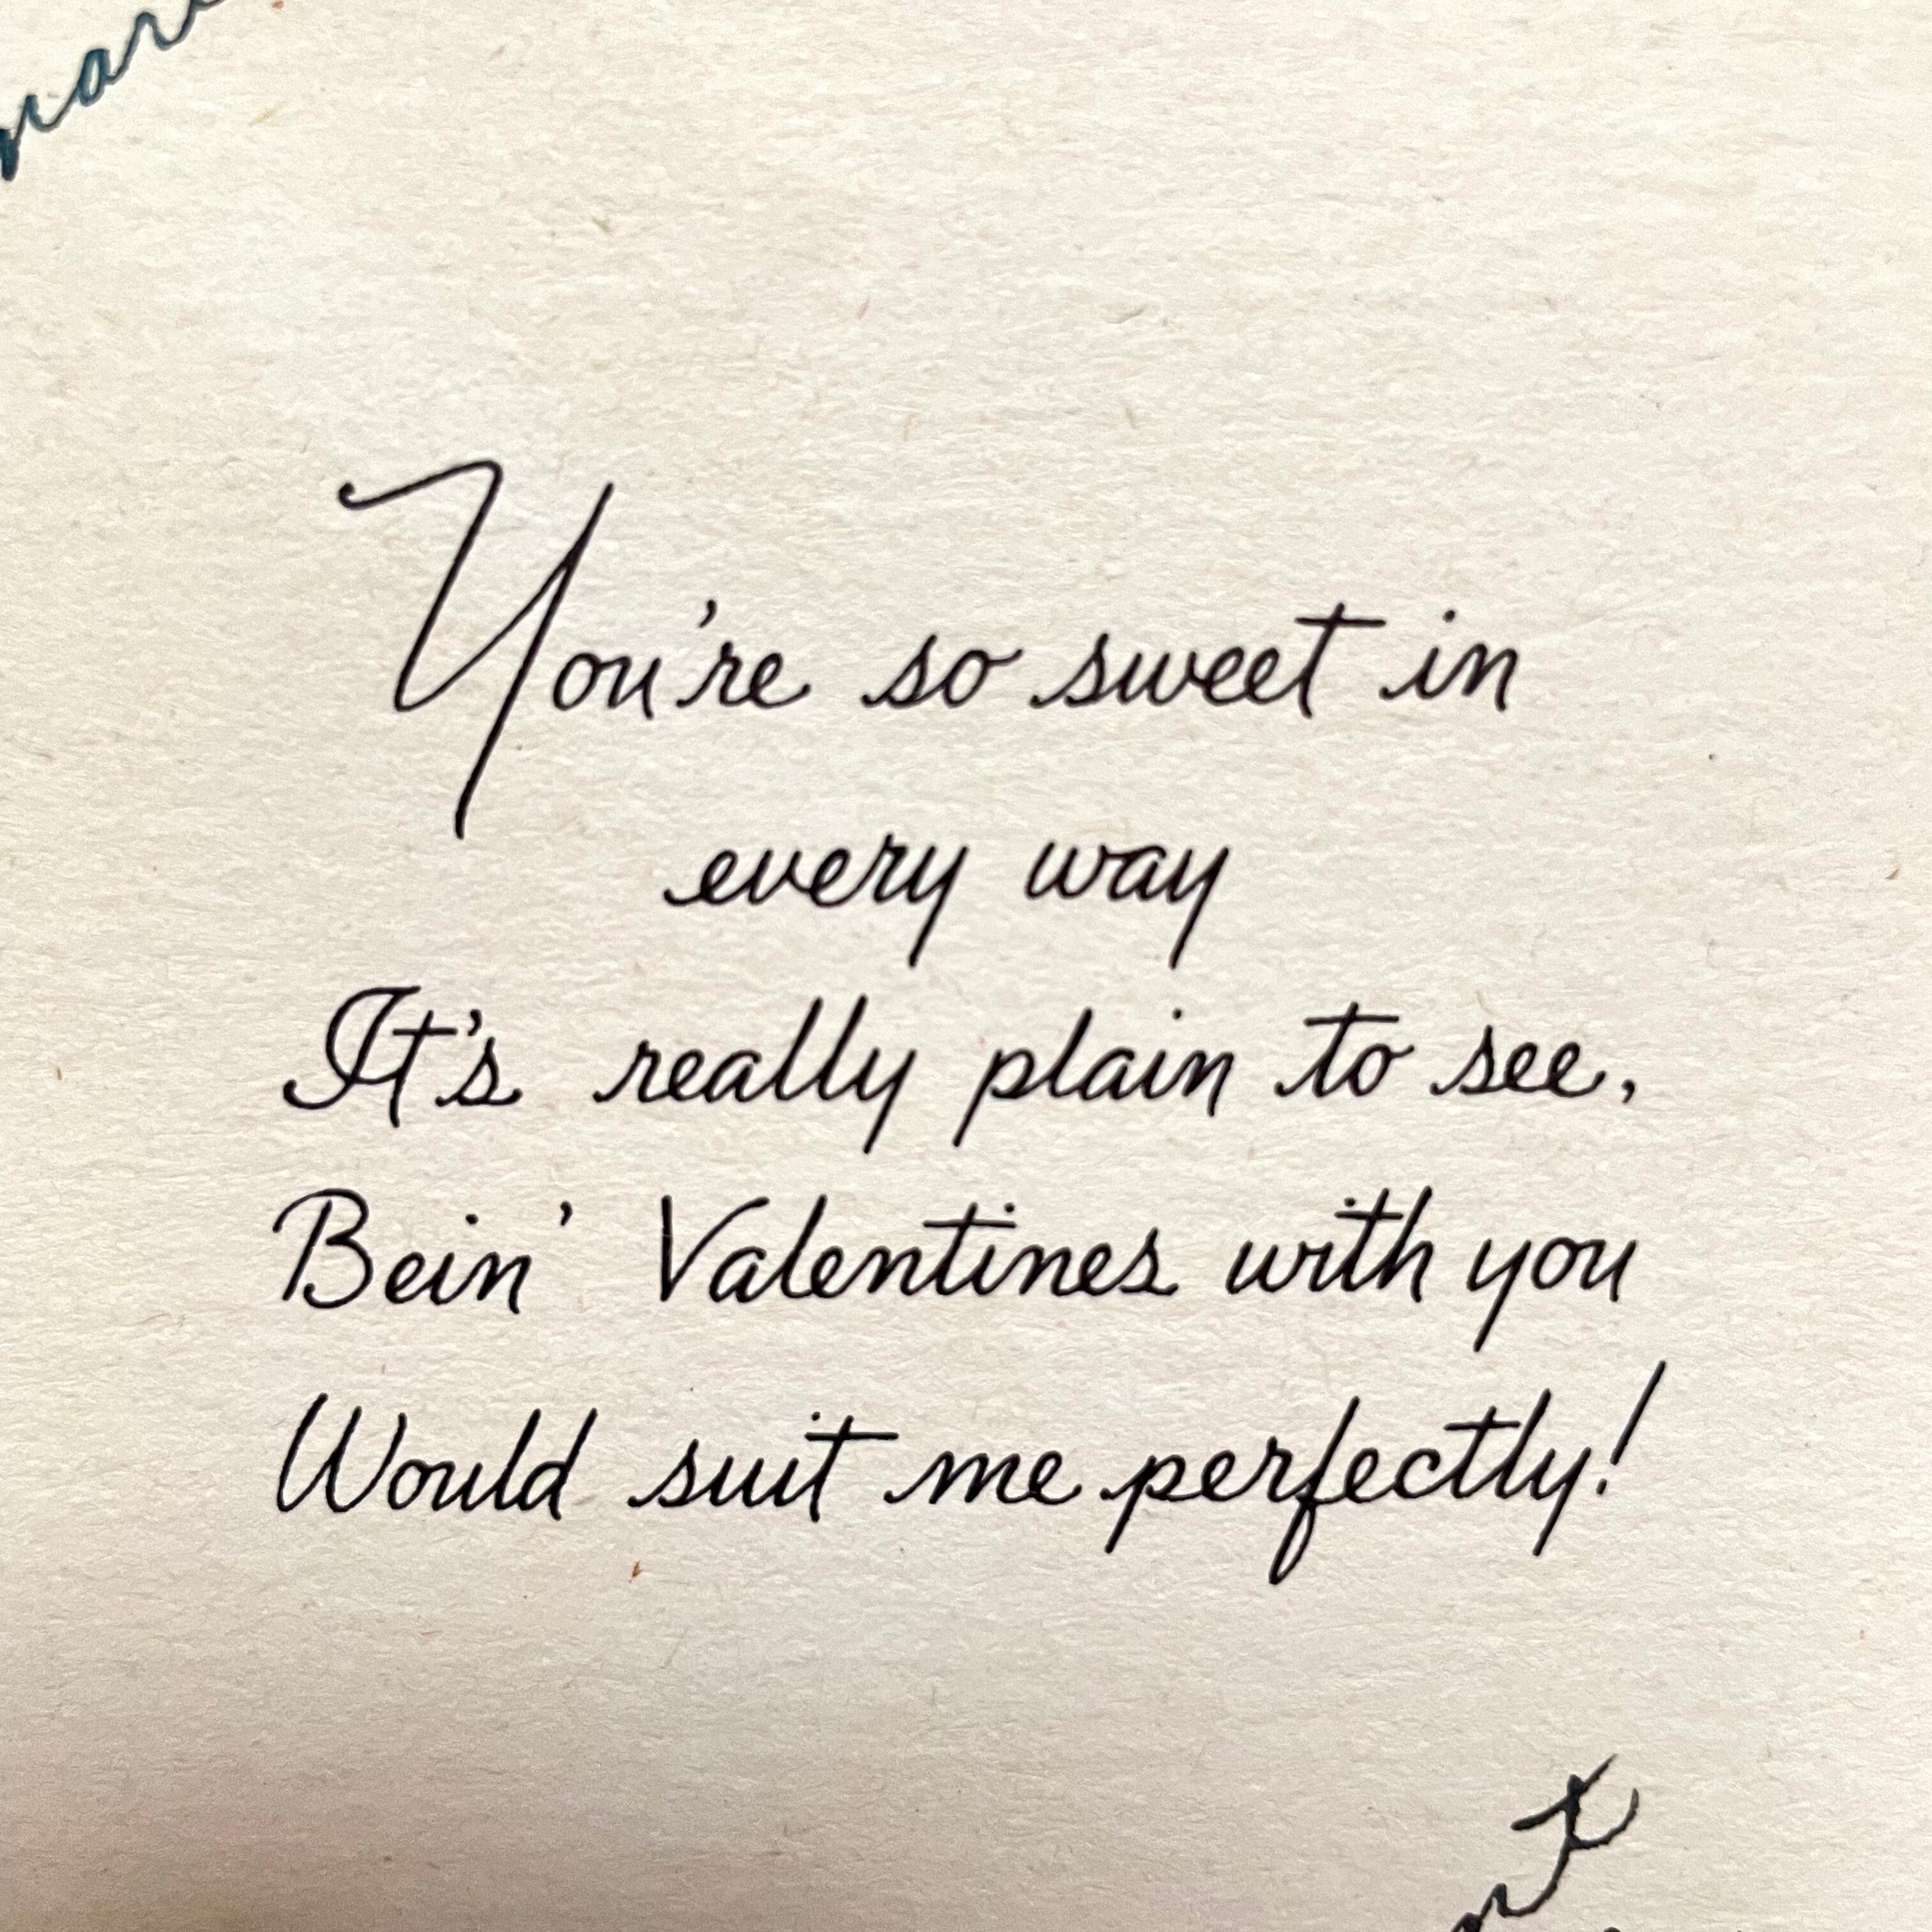 You're so sweet in
every way
It's really plain to see,
Bein' Valentines with you
Would suit me perfectly!